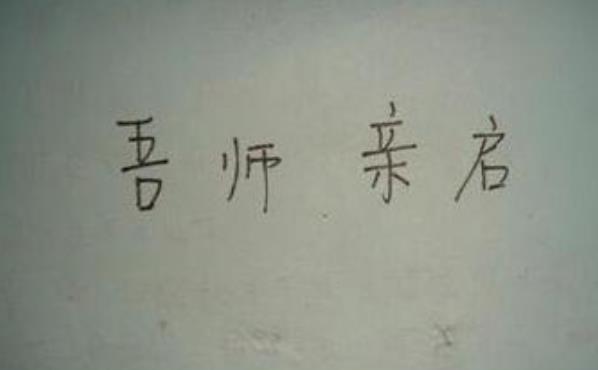 吾师亲启